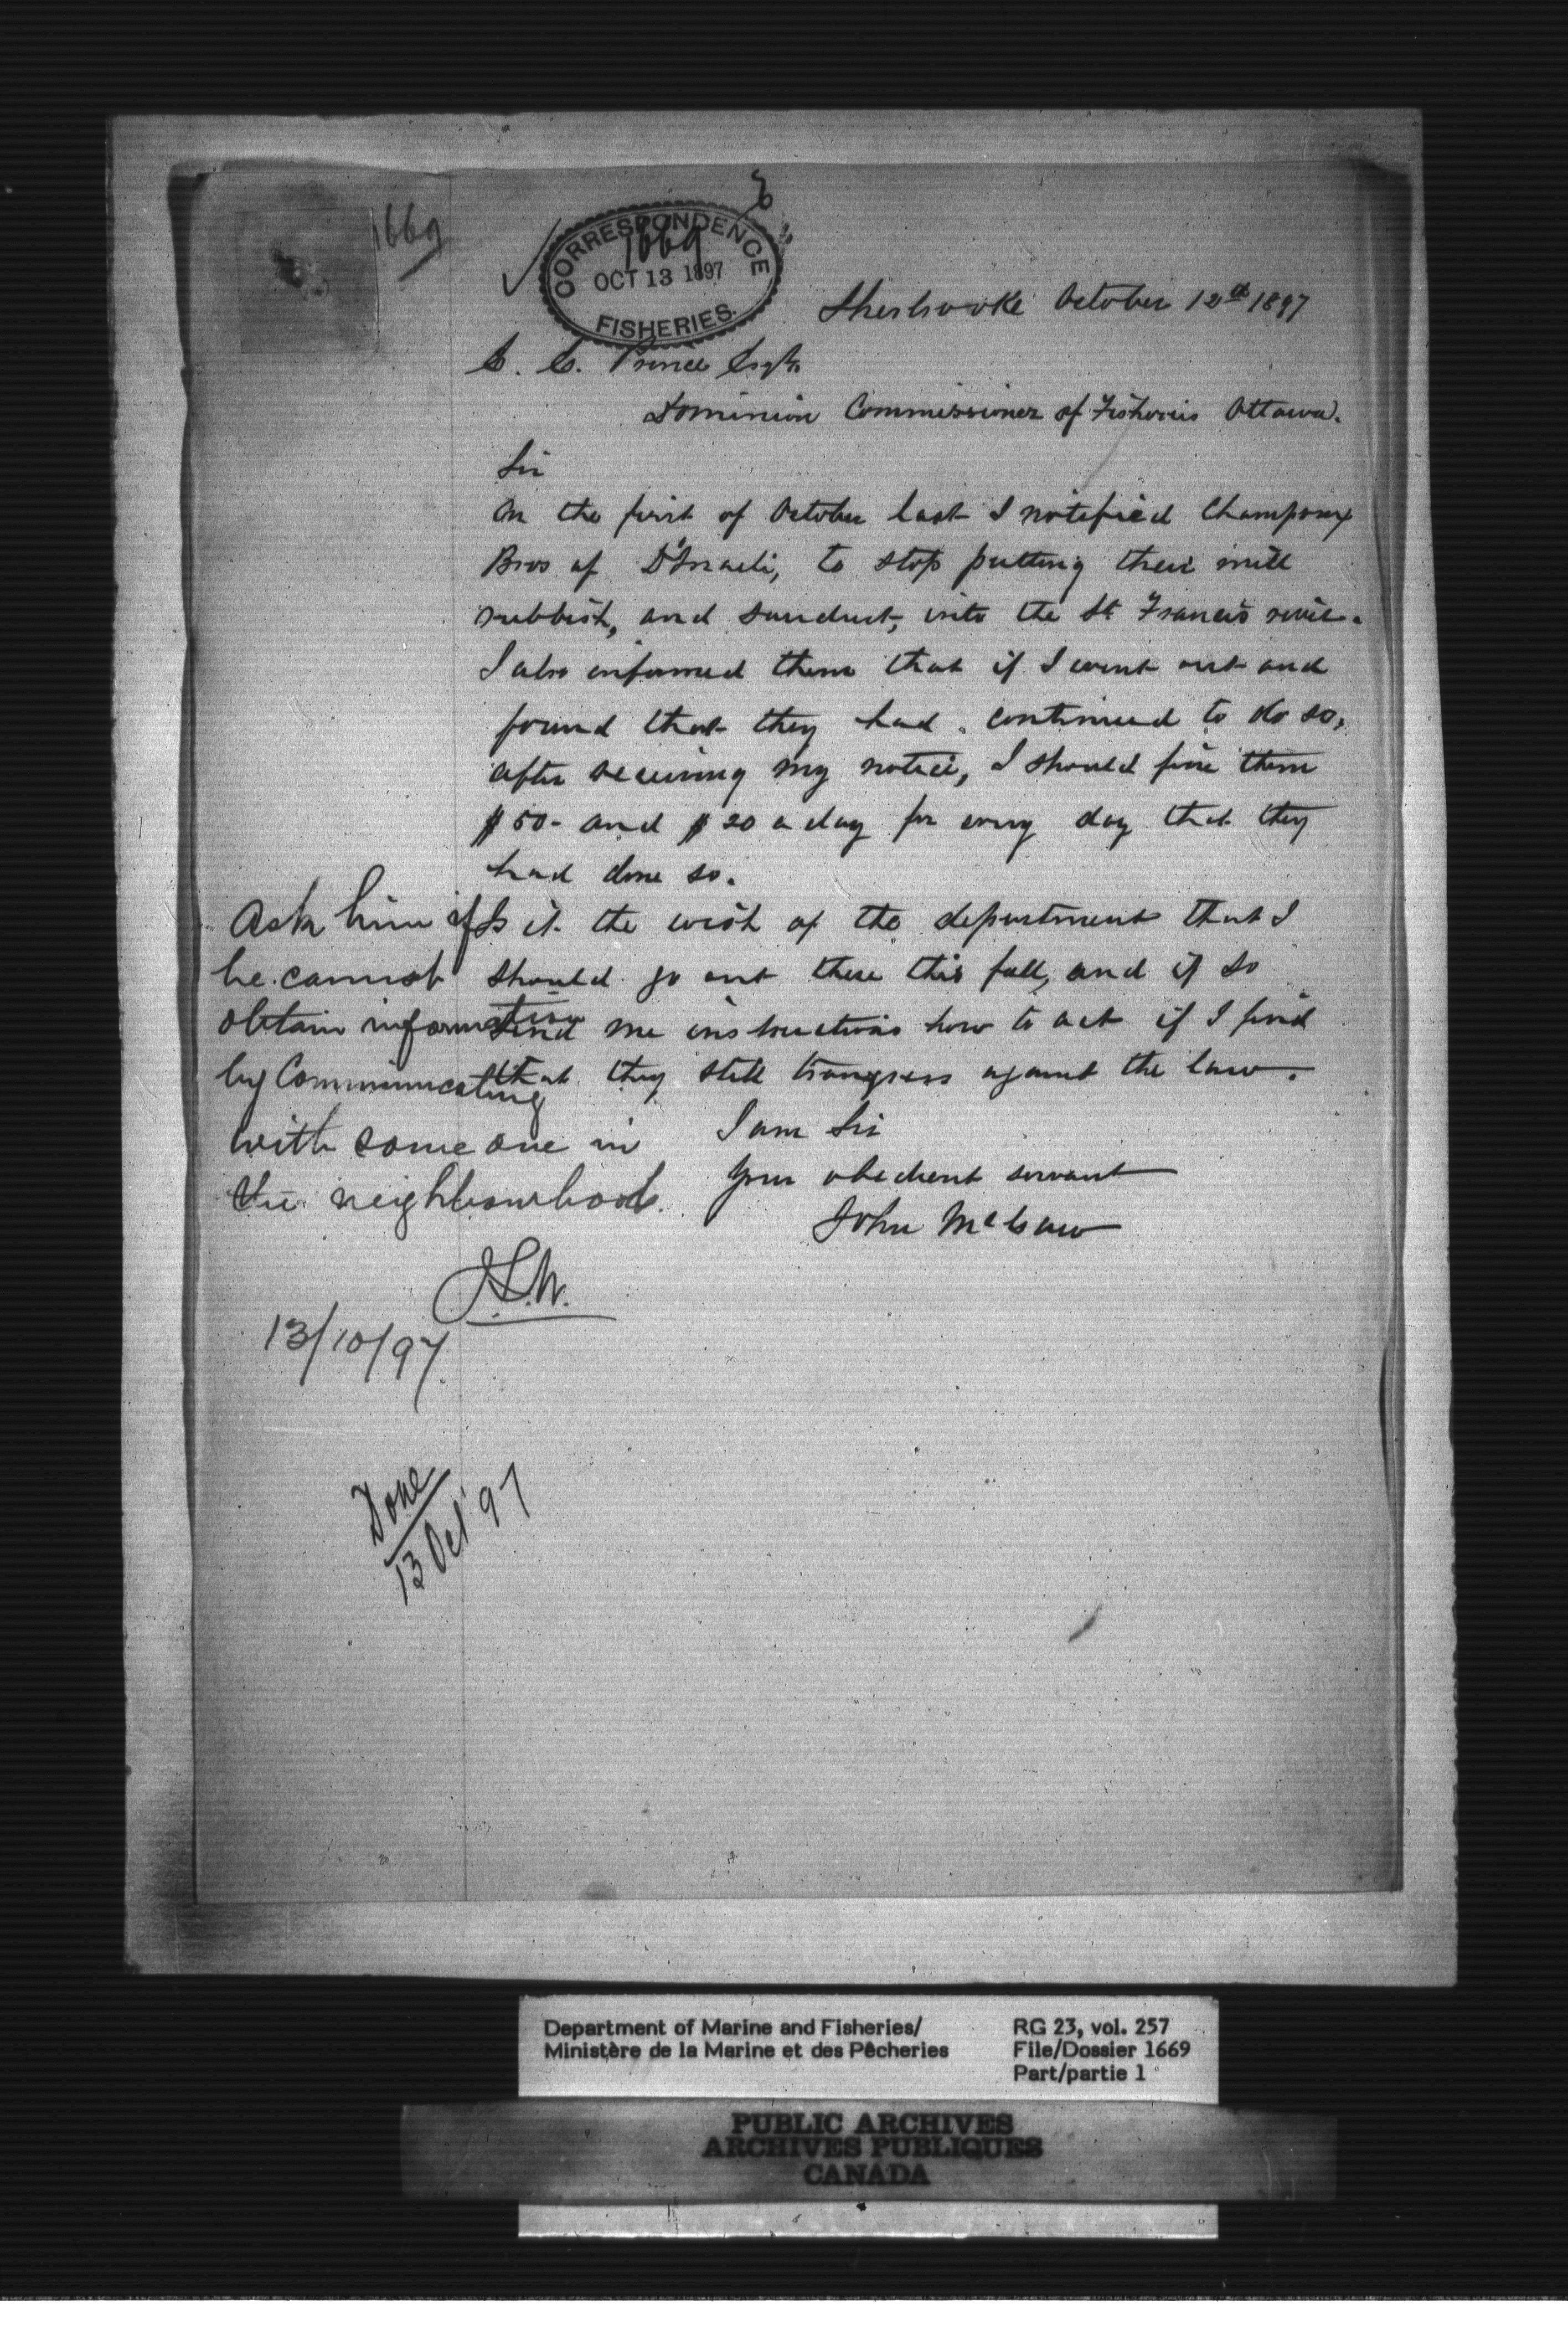 1669
CORRESPONDENCE
1669
OCT 13 1897
FISHERIES.
Sherbrooke October 12th 1897
E. E. Prince Esqr.
Dominion Commissioner of Fisheries Ottawa.
Sir
On the first of October last I notified Champoux
Bros of D'Israeli, to stop putting their mill
rubbish, and sawdust, into the St Francis river.
I also informed them that if I went out and
found that they had continued to do so,
after receiving my notice, I should fine them
$50- and $20 a day for every day that they
had done so.
Is it the wish of the department that I
should go out there this fall, and if so
send me instructions how to act if I find
that they still transgress against the law.
I am Sir
Your obedient servant
John McCaw
Ask him if
he cannot
obtain information
by Communicating
with some one in
the neighbourhood.
13/10/97.
Done
13 Oct '97
Department of Marine and Fisheries/
Ministère de la Marine et des Pêcheries
RG 23, vol. 257
File/Dossier 1669
Part/partie 1
PUBLIC ARCHIVES
ARCHIVES PUBLIQUES
CANADA